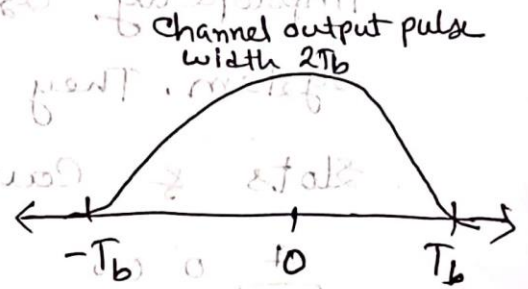 Channel output pulse
width 2Tb
-Tb 0 Tb